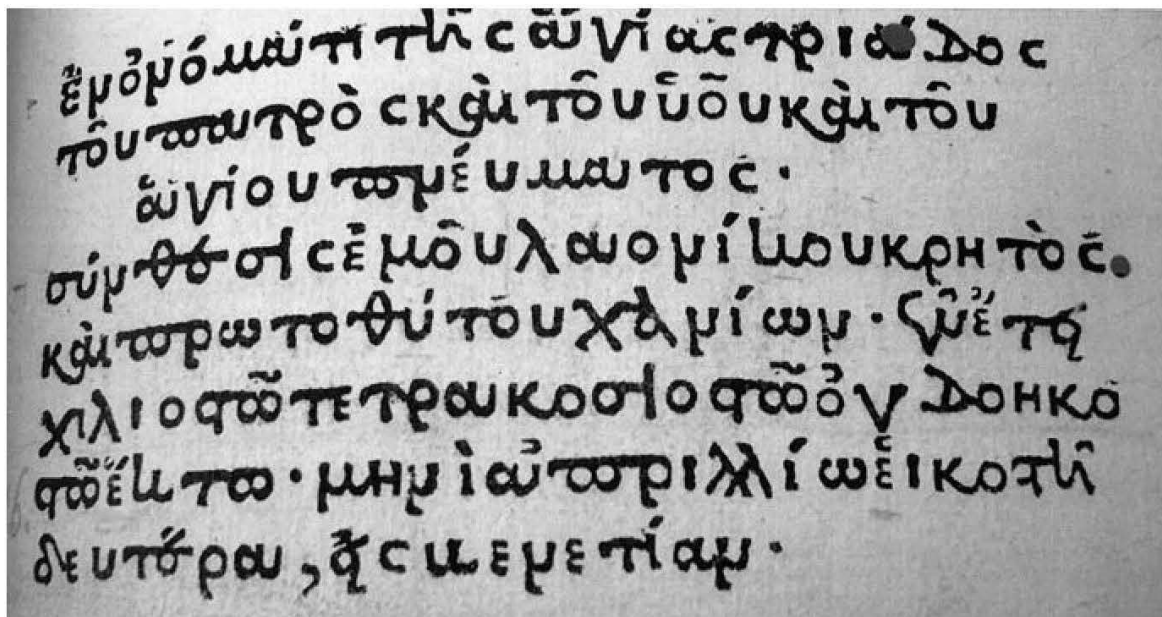 ἐν ὀνόματι τῆς ἁγίας τριάδος
τοῦ πατρὸς καὶ τοῦ ὑοῦ καὶ τοῦ
ἁγίου πνεύματος.
σύνθεσις ἐμοῦ λαονίκου κρητὸς.
καὶ πρωτοθύτου χανίων. ἐν ἔτει
χιλιοστῶ τετρακοσιοστῶ ὀγδοηκο
στῶ ἕκτω. μηνὶ ἀπριλλίω εἰκοστῆ
δευτέρα, εἰς βενετίαν.